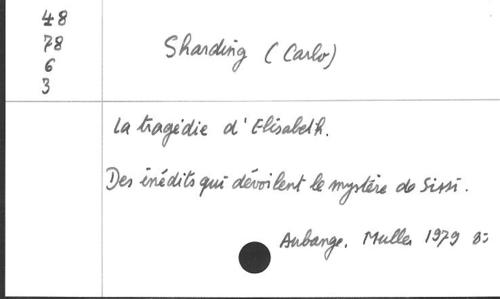 48
78
6
3
Sharding (Carlo)
La tragédie d'Elisabeth.
Des inédits qui dévoilent le mystère de Sissi.
Aubange. Muller 1979 8=